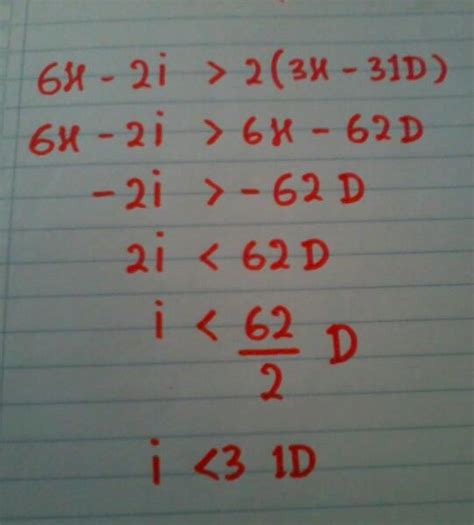 6x - 2i > 2(3x - 31D)
6x - 2i > 6x - 62D
-2i > -62D
2i < 62D
i < 62/2 D
i < 3 1D